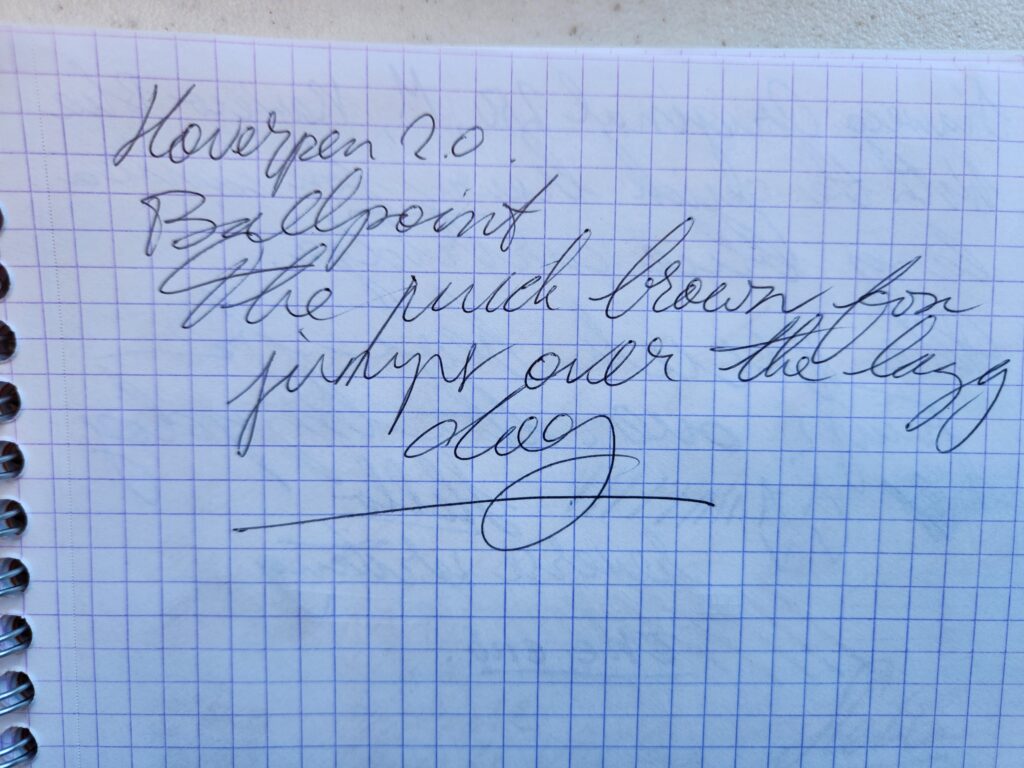 Hoverpen 2.0.
Ballpoint
The quick brown fox
jumps over the lazy
dog